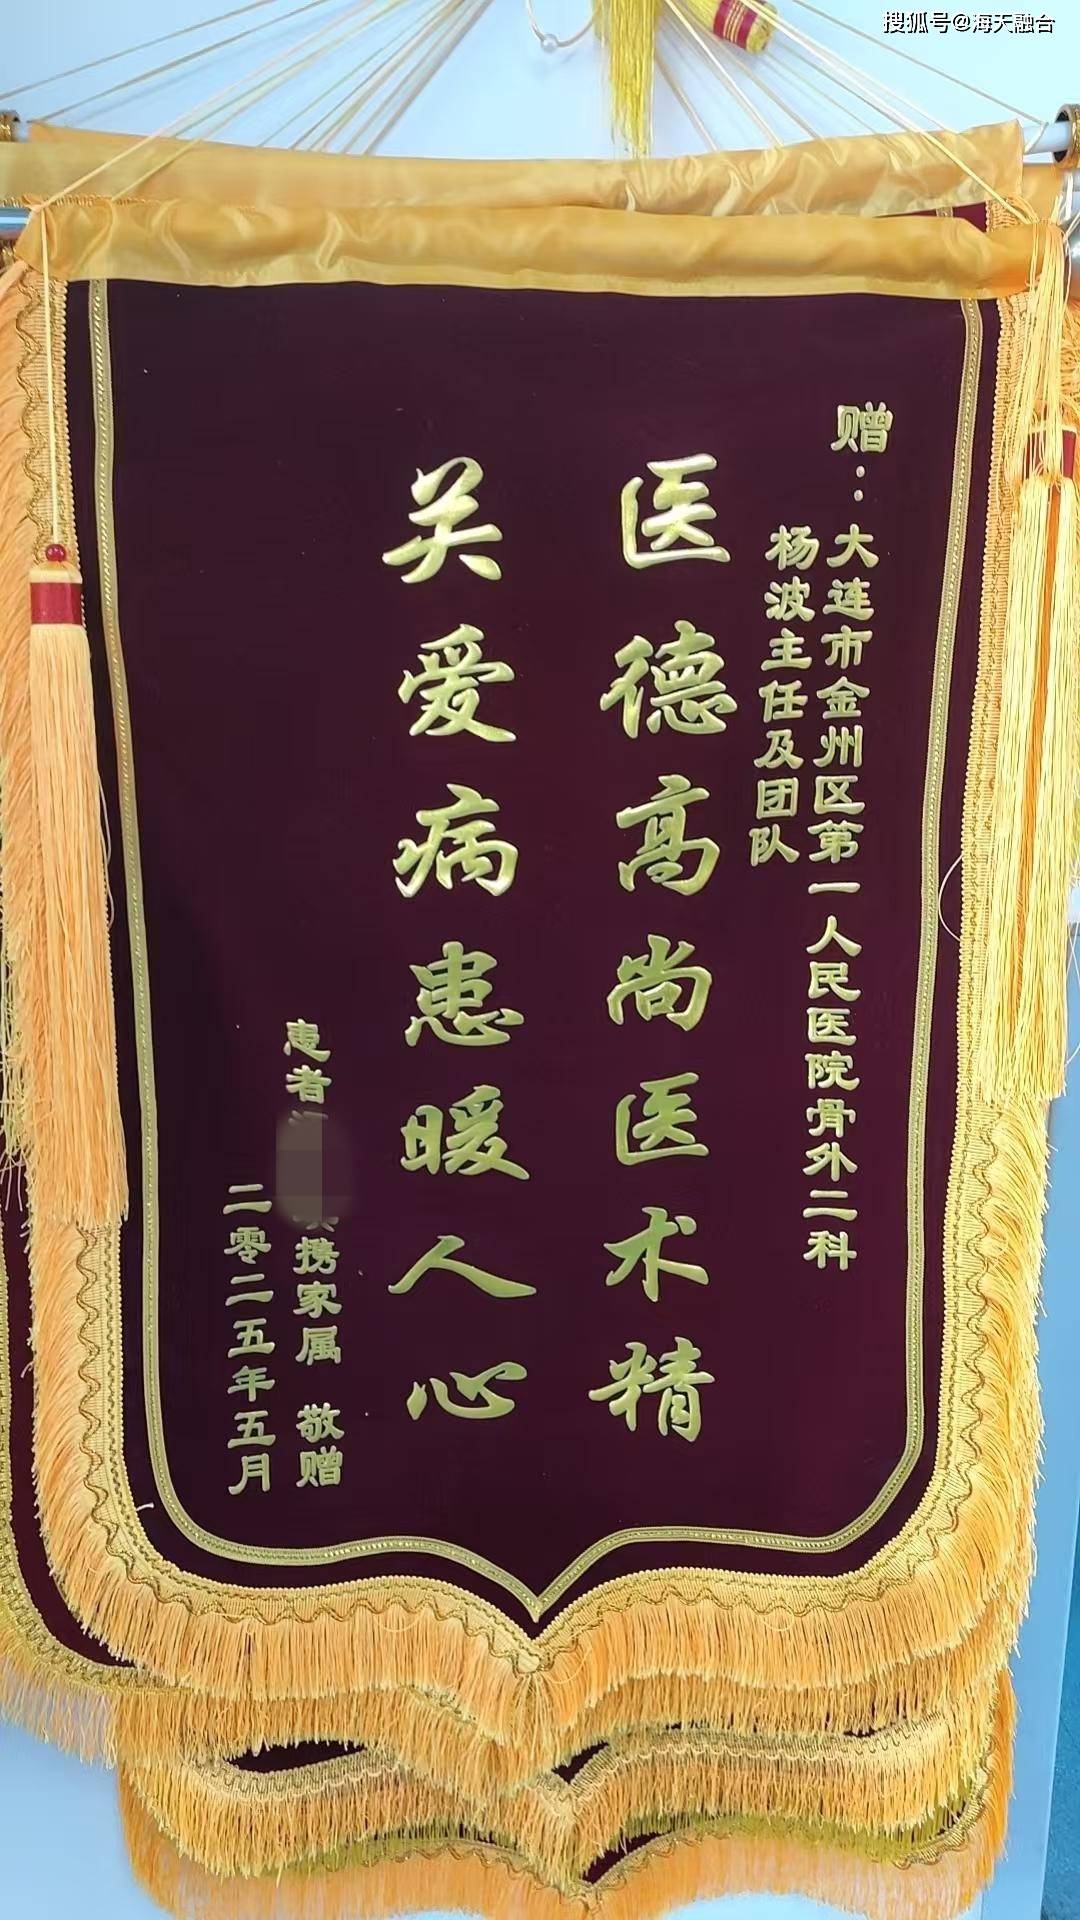 搜狐号@海天融台
赠：
大连市金州区第一人民医院骨外二科
杨波主任及团队
医德高尚医术精
关爱病患暖人心
患者
携家属 敬赠
二零二五年五月